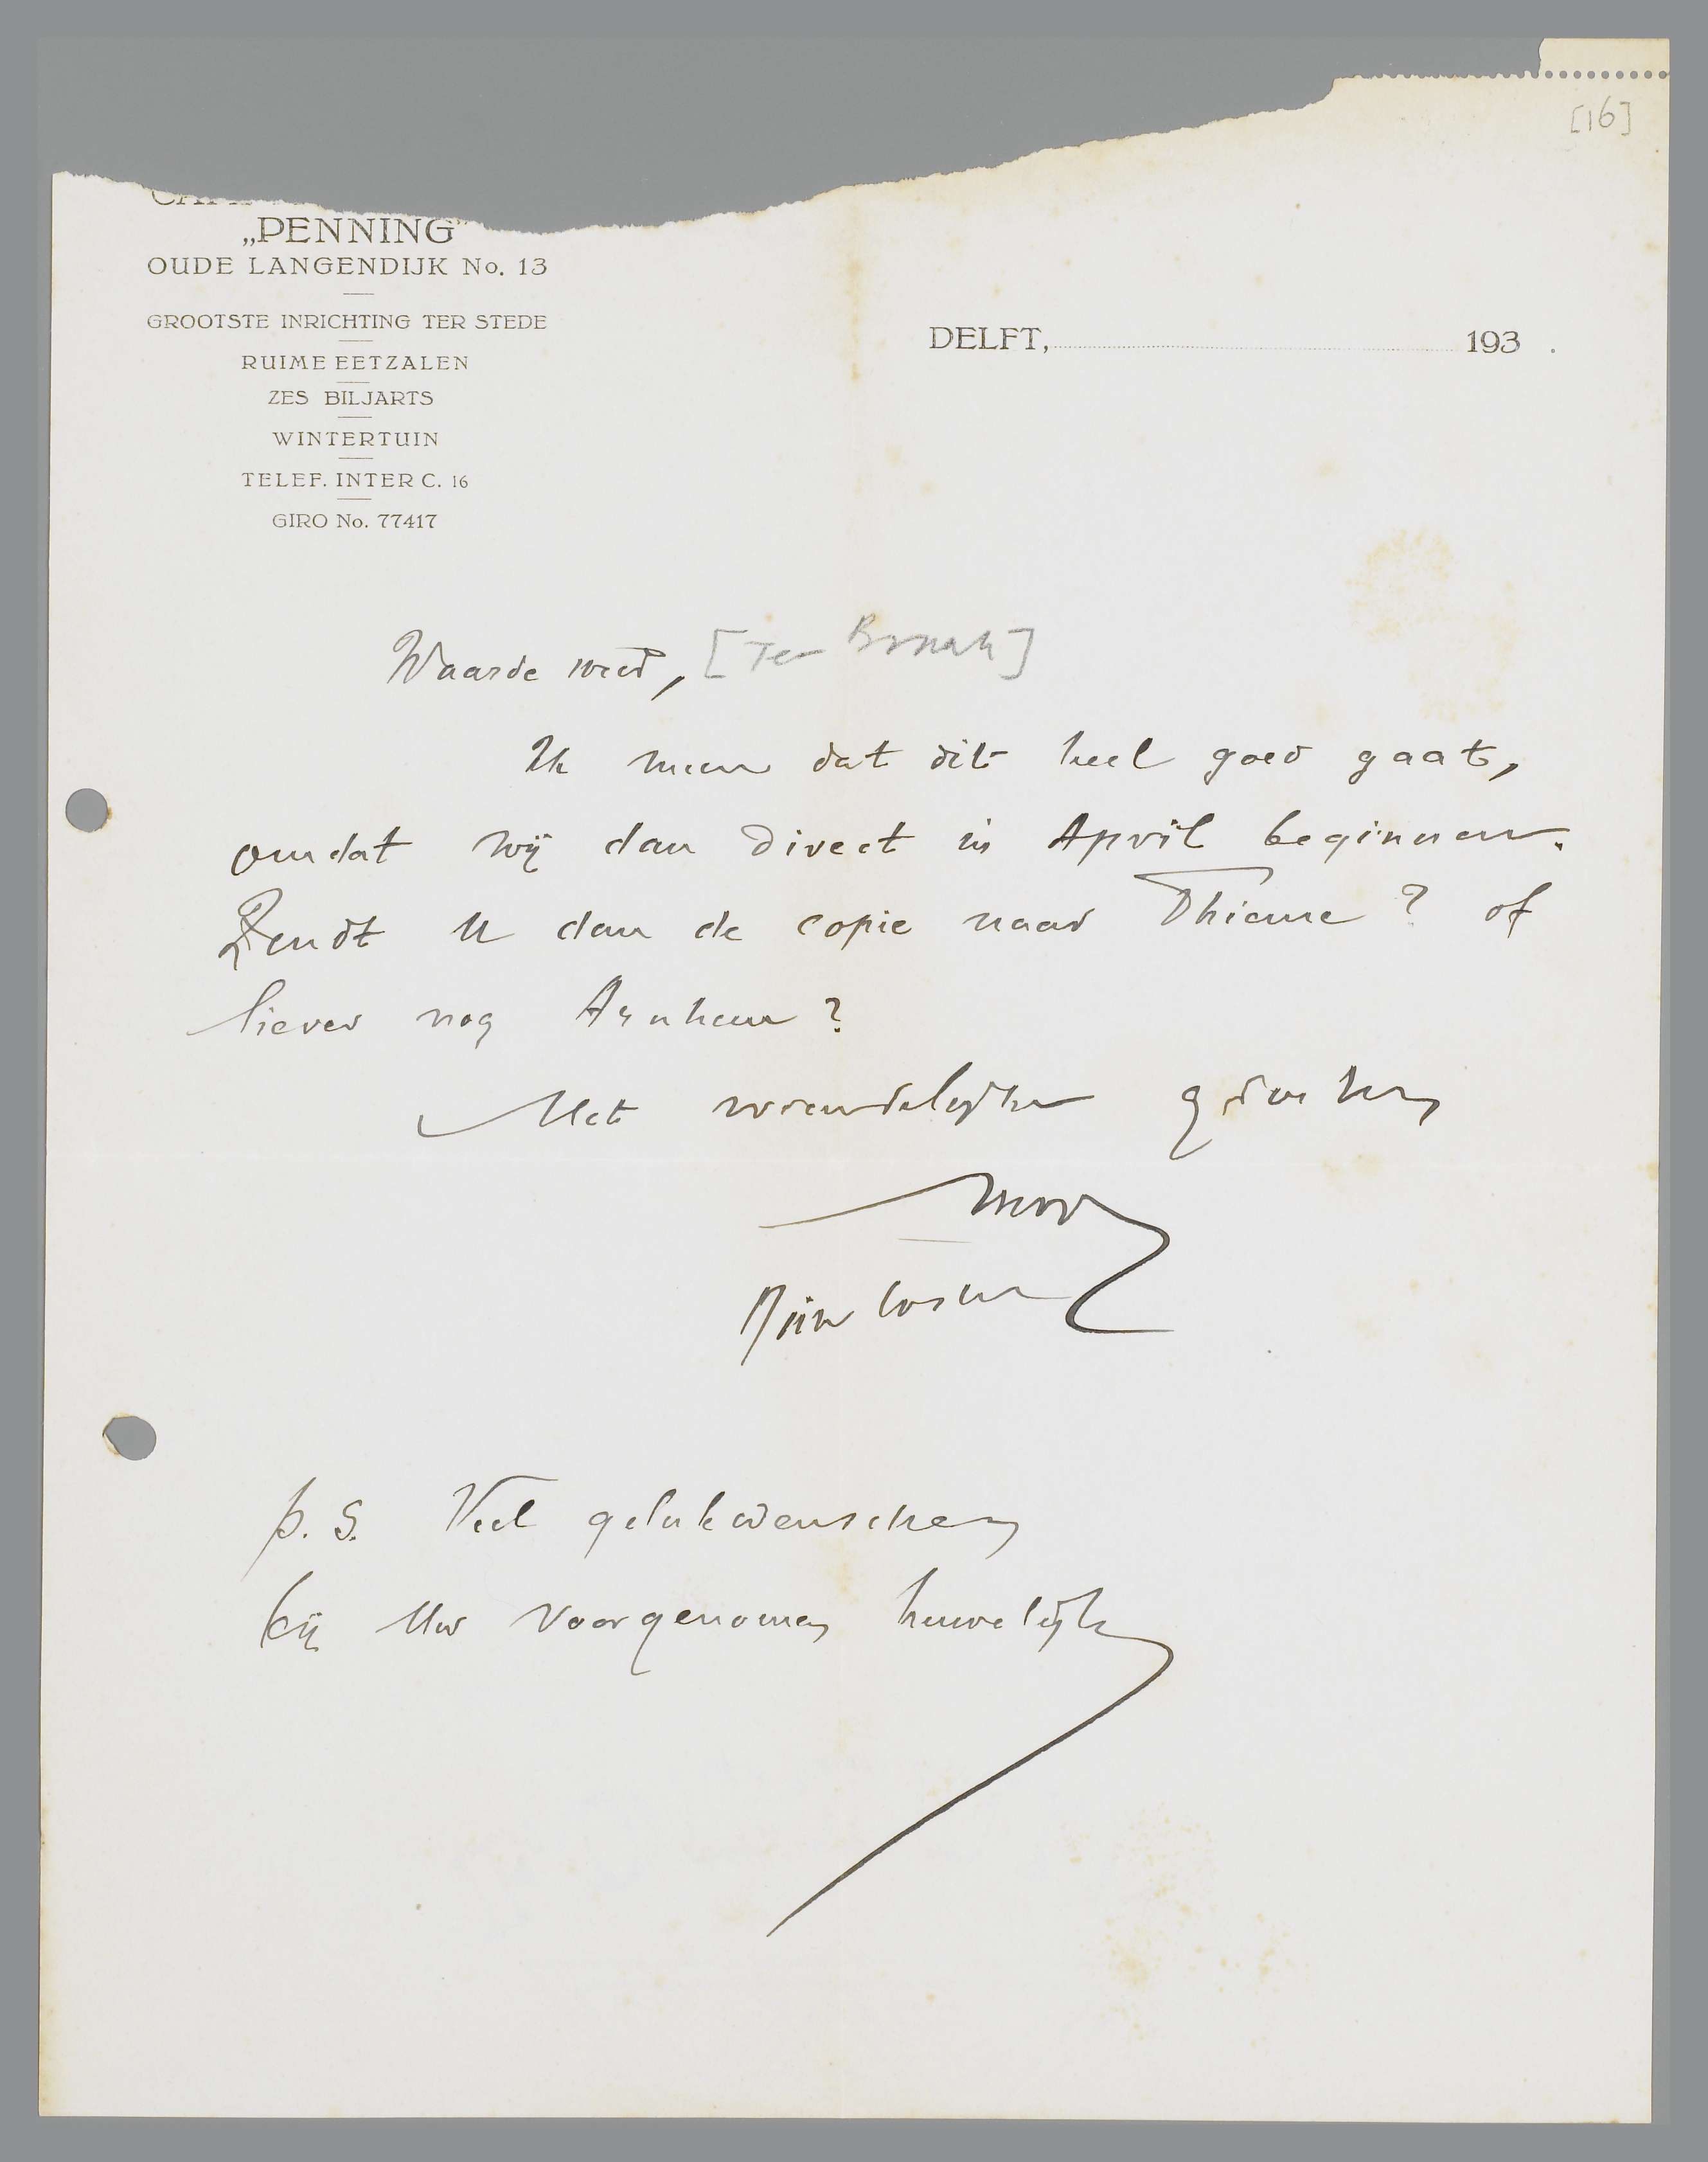 [16]
„PENNING”
OUDE LANGENDIJK No. 13
GROOTSTE INRICHTING TER STEDE
RUIME EETZALEN
ZES BILJARTS
WINTERTUIN
TELEF. INTERC. 16
GIRO No. 77417
DELFT, 193 .
Waarde vriend, [Ter Braak]
Ik meen dat dit heel goed gaat,
omdat wij dan direct in April beginnen.
Zendt U dan de copie naar Thieme? of
liever nog Arnhem?
Met vriendelijke groeten
Uw
Dirk Coster
p.s. Veel gelukwenschen
bij Uw voorgenomen huwelijk